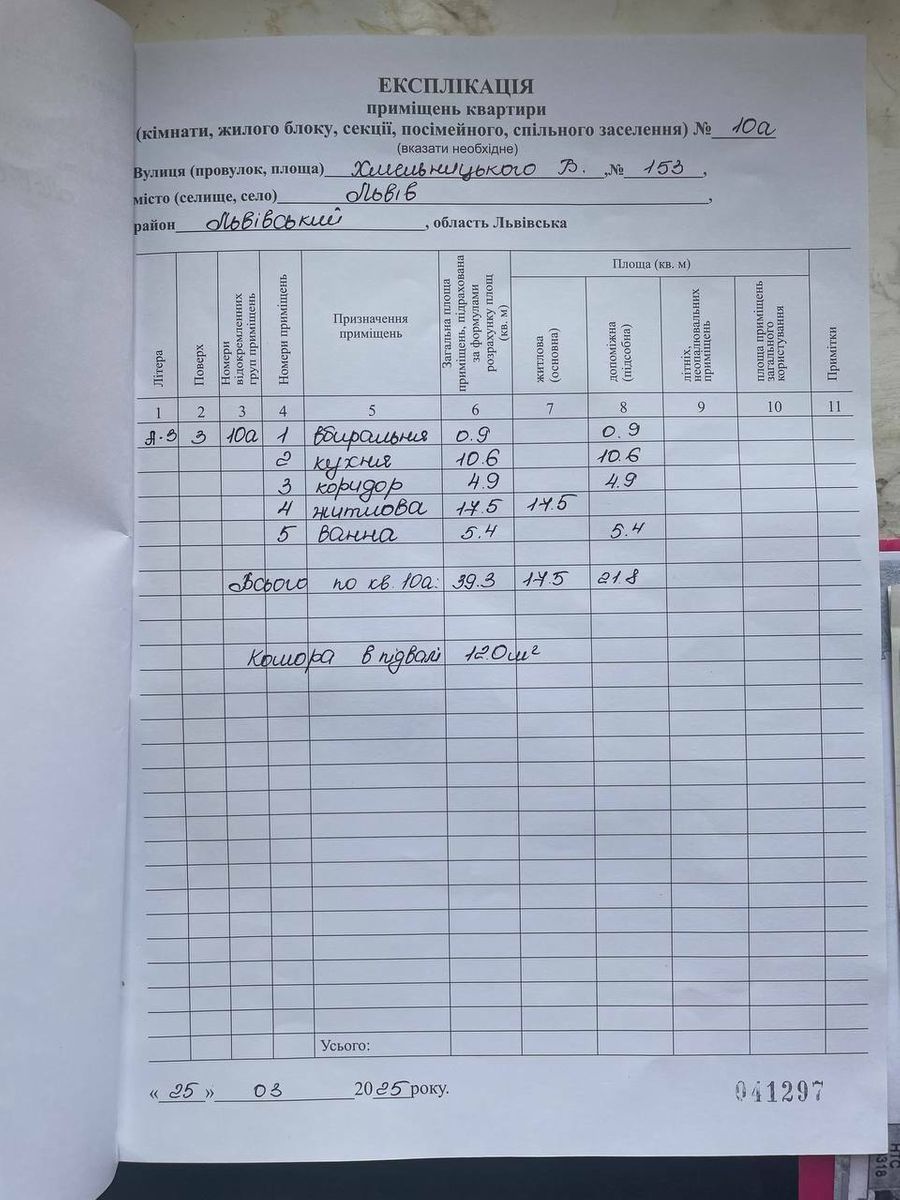 ЕКСПЛІКАЦІЯ
приміщень квартири
(кімнати, жилого блоку, секції, посімейного, спільного заселення) № 10а
(вказати необхідне)
Вулиця (провулок, площа) Хмельницького Б. ,№ 153 ,
місто (селище, село) Львів ,
район Львівський , область Львівська
Літера
Поверх
Номери відокремленних груп приміщень
Номери приміщень
Призначення приміщень
Загальна площа приміщень, підрахована за формулами розрахунку площ (кв. м)
Площа (кв. м)
житлова (основна)
допоміжна (підсобна)
літніх, неопалювальних приміщень
площа приміщень загального користування
Примітки
1 2 3 4 5 6 7 8 9 10 11
А-3 3 10а 1 вбиральня 0.9 0.9
2 кухня 10.6 10.6
3 коридор 4.9 4.9
4 житлова 17.5 17.5
5 ванна 5.4 5.4
Всього по кв. 10а: 39.3 17.5 21.8
Комора в підвалі 12.0 м²
Усього:
« 25 » 03 2025 року.
041297
НТС
318